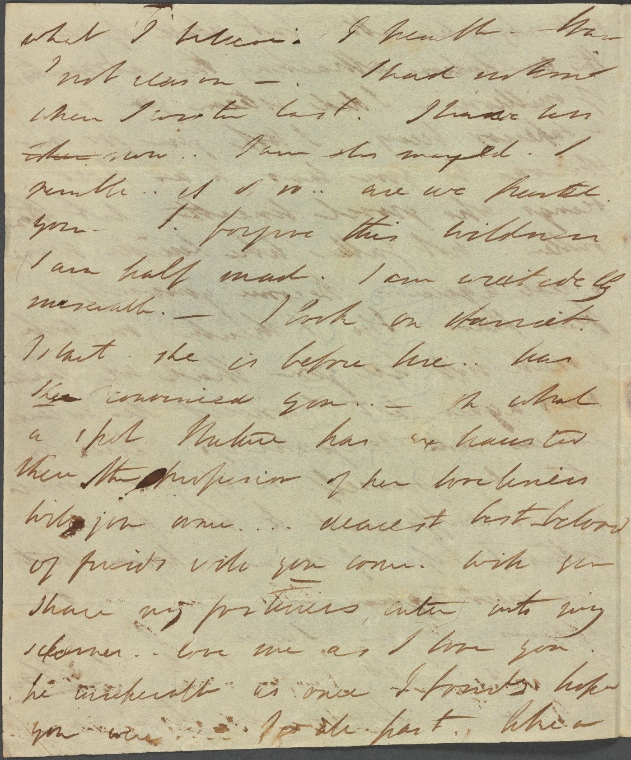 what I believe. I
not reason —. I had not
when I wrote last. I have less
then now.. I am dismayed. I
tremble.. if it is so.. are we parted
you— I. forgive this wildness
I am half mad. I am wretchedly
miserable. — I look on Harriet.
I start. she is before me.. has
she convinced you.. — In what
a spot Nature has exhausted
there the profusion of her loveliness
Will you come.... dearest best beloved
of friends will you come. will you
share my fortunes enter into my
schemes.. love me as I love you.
be inseparable as once I fondly hoped
you were. .. past. like a